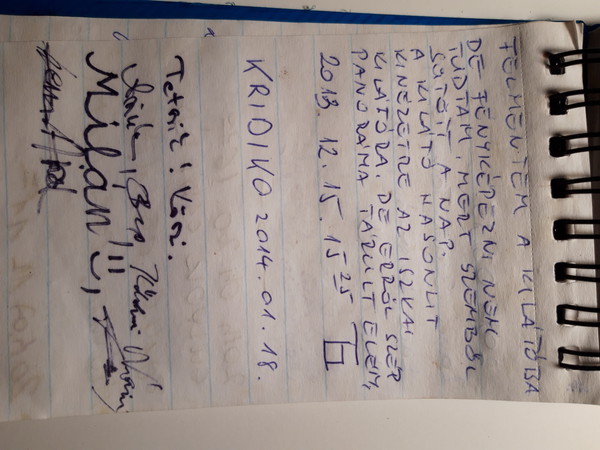 FELMENTEM A KILÁTÓBA
DE FÉNYKÉPEZNI NEM
TUDTAM, MERT SZEMBŐL
SÜTÖTT A NAP.
A KILÁTÓ HASONLIT
KINÉZETRE AZ ISZKAI
KILÁTÓRA. DE ERRŐL SZÉP
PANORÁMA TÁRULT ELÉM,
2013. 12. 15. 15 25
KRIDIKO 2014.01.18.
Tetszik!
Milán